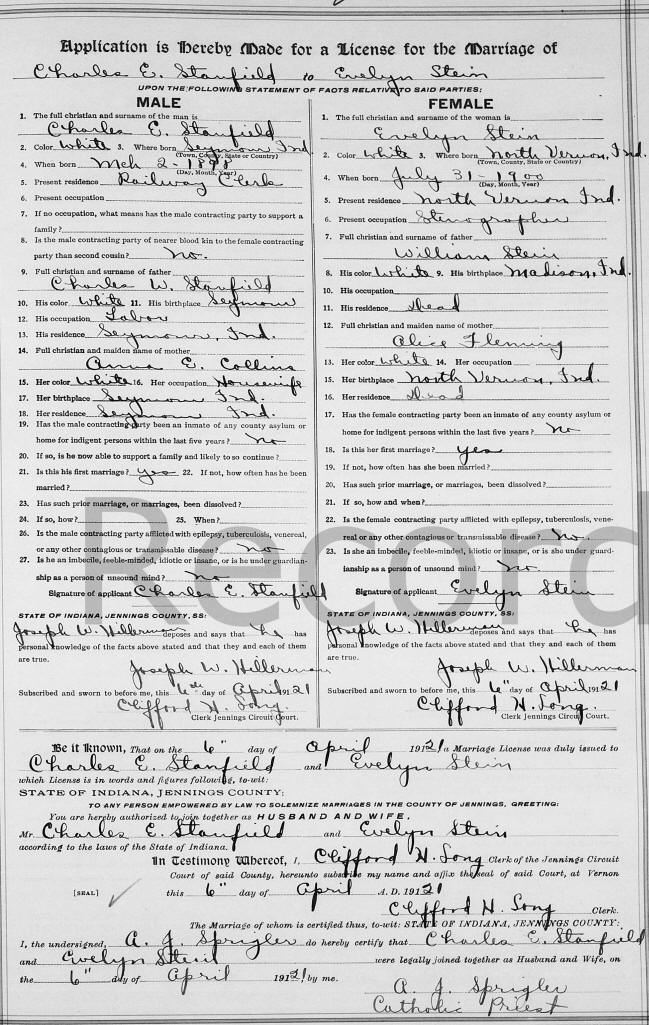 Application is Hereby Made for a License for the Marriage of
Charles E. Stanfield to Evelyn Stein
UPON THE FOLLOWING STATEMENT OF FACTS RELATIVE TO SAID PARTIES:
MALE
1. The full christian and surname of the man is
Charles E. Stanfield
2. Color White 3. Where born Seymour Ind.
(Town, County, State or Country)
4. When born Mch 2-1898
(Day, Month, Year)
5. Present residence Railway Clerk
6. Present occupation
7. If no occupation, what means has the male contracting party to support a
family?
8. Is the male contracting party of nearer blood kin to the female contracting
party than second cousin? No.
9. Full christian and surname of father
Charles W. Stanfield
10. His color White 11. His birthplace Seymour
12. His occupation Labor
13. His residence Seymour, Ind.
14. Full christian and maiden name of mother
Anna E. Collins
15. Her color White 16. Her occupation Housewife
17. Her birthplace Seymour Ind.
18. Her residence Seymour Ind.
19. Has the male contracting party been an inmate of any county asylum or
home for indigent persons within the last five years? No
20. If so, is he now able to support a family and likely to so continue?
21. Is this his first marriage? yes 22. If not, how often has he been
married?
23. Has such prior marriage, or marriages, been dissolved?
24. If so, how? 25. When?
26. Is the male contracting party afflicted with epilepsy, tuberculosis, venereal,
or any other contagious or transmissable disease? no
27. Is he an imbecile, feeble-minded, idiotic or insane, or is he under guardian-
ship as a person of unsound mind? no
Signature of applicant Charles E. Stanfield
STATE OF INDIANA, JENNINGS COUNTY, SS:
Joseph W. Hillerman deposes and says that he has
personal knowledge of the facts above stated and that they and each of them
are true.
Joseph W. Hillerman
Subscribed and sworn to before me, this 6th day of April 19121
Clifford H. Long
Clerk Jennings Circuit Court.
FEMALE
1. The full christian and surname of the woman is
Evelyn Stein
2. Color White 3. Where born North Vernon, Ind.
(Town, County, State or Country)
4. When born July 31-1900
(Day, Month, Year)
5. Present residence North Vernon Ind.
6. Present occupation Stenographer
7. Full christian and surname of father
William Stein
8. His color White 9. His birthplace Madison, Ind.
10. His occupation
11. His residence Dead
12. Full christian and maiden name of mother
Alice Fleming
13. Her color White 14. Her occupation
15. Her birthplace North Vernon, Ind.
16. Her residence Dead
17. Has the female contracting party been an inmate of any county asylum or
home for indigent persons within the last five years? No
18. Is this her first marriage? yes
19. If not, how often has she been married?
20. Has such prior marriage, or marriages, been dissolved?
21. If so, how and when?
22. Is the female contracting party afflicted with epilepsy, tuberculosis, vene-
real or any other contagious or transmissable disease? No.
23. Is she an imbecile, feeble-minded, idiotic or insane, or is she under guard-
ianship as a person of unsound mind? No.
Signature of applicant Evelyn Stein
STATE OF INDIANA, JENNINGS COUNTY, SS:
Joseph W. Hillerman deposes and says that he has
personal knowledge of the facts above stated and that they and each of them
are true.
Joseph W. Hillerman
Subscribed and sworn to before me, this 6" day of April 19121
Clifford H. Long
Clerk Jennings Circuit Court.
Record
Be it Known, That on the 6" day of April 19121 a Marriage License was duly issued to
Charles E. Stanfield and Evelyn Stein
which License is in words and figures following, to-wit:
STATE OF INDIANA, JENNINGS COUNTY:
TO ANY PERSON EMPOWERED BY LAW TO SOLEMNIZE MARRIAGES IN THE COUNTY OF JENNINGS, GREETING:
You are hereby authorized to join together as HUSBAND AND WIFE,
Mr. Charles E. Stanfield and Evelyn Stein
according to the laws of the State of Indiana.
In Testimony Whereof, I, Clifford H. Long Clerk of the Jennings Circuit
Court of said County, hereunto subscribe my name and affix the seal of said Court, at Vernon
[SEAL] this 6" day of April A. D. 19121
Clifford H. Long Clerk.
The Marriage of whom is certified thus, to-wit: STATE OF INDIANA, JENNINGS COUNTY:
I, the undersigned, A. J. Sprigler do hereby certify that Charles E. Stanfield
and Evelyn Stein were legally joined together as Husband and Wife, on
the 6" day of April 19121 by me.
A. J. Sprigler
Catholic Priest